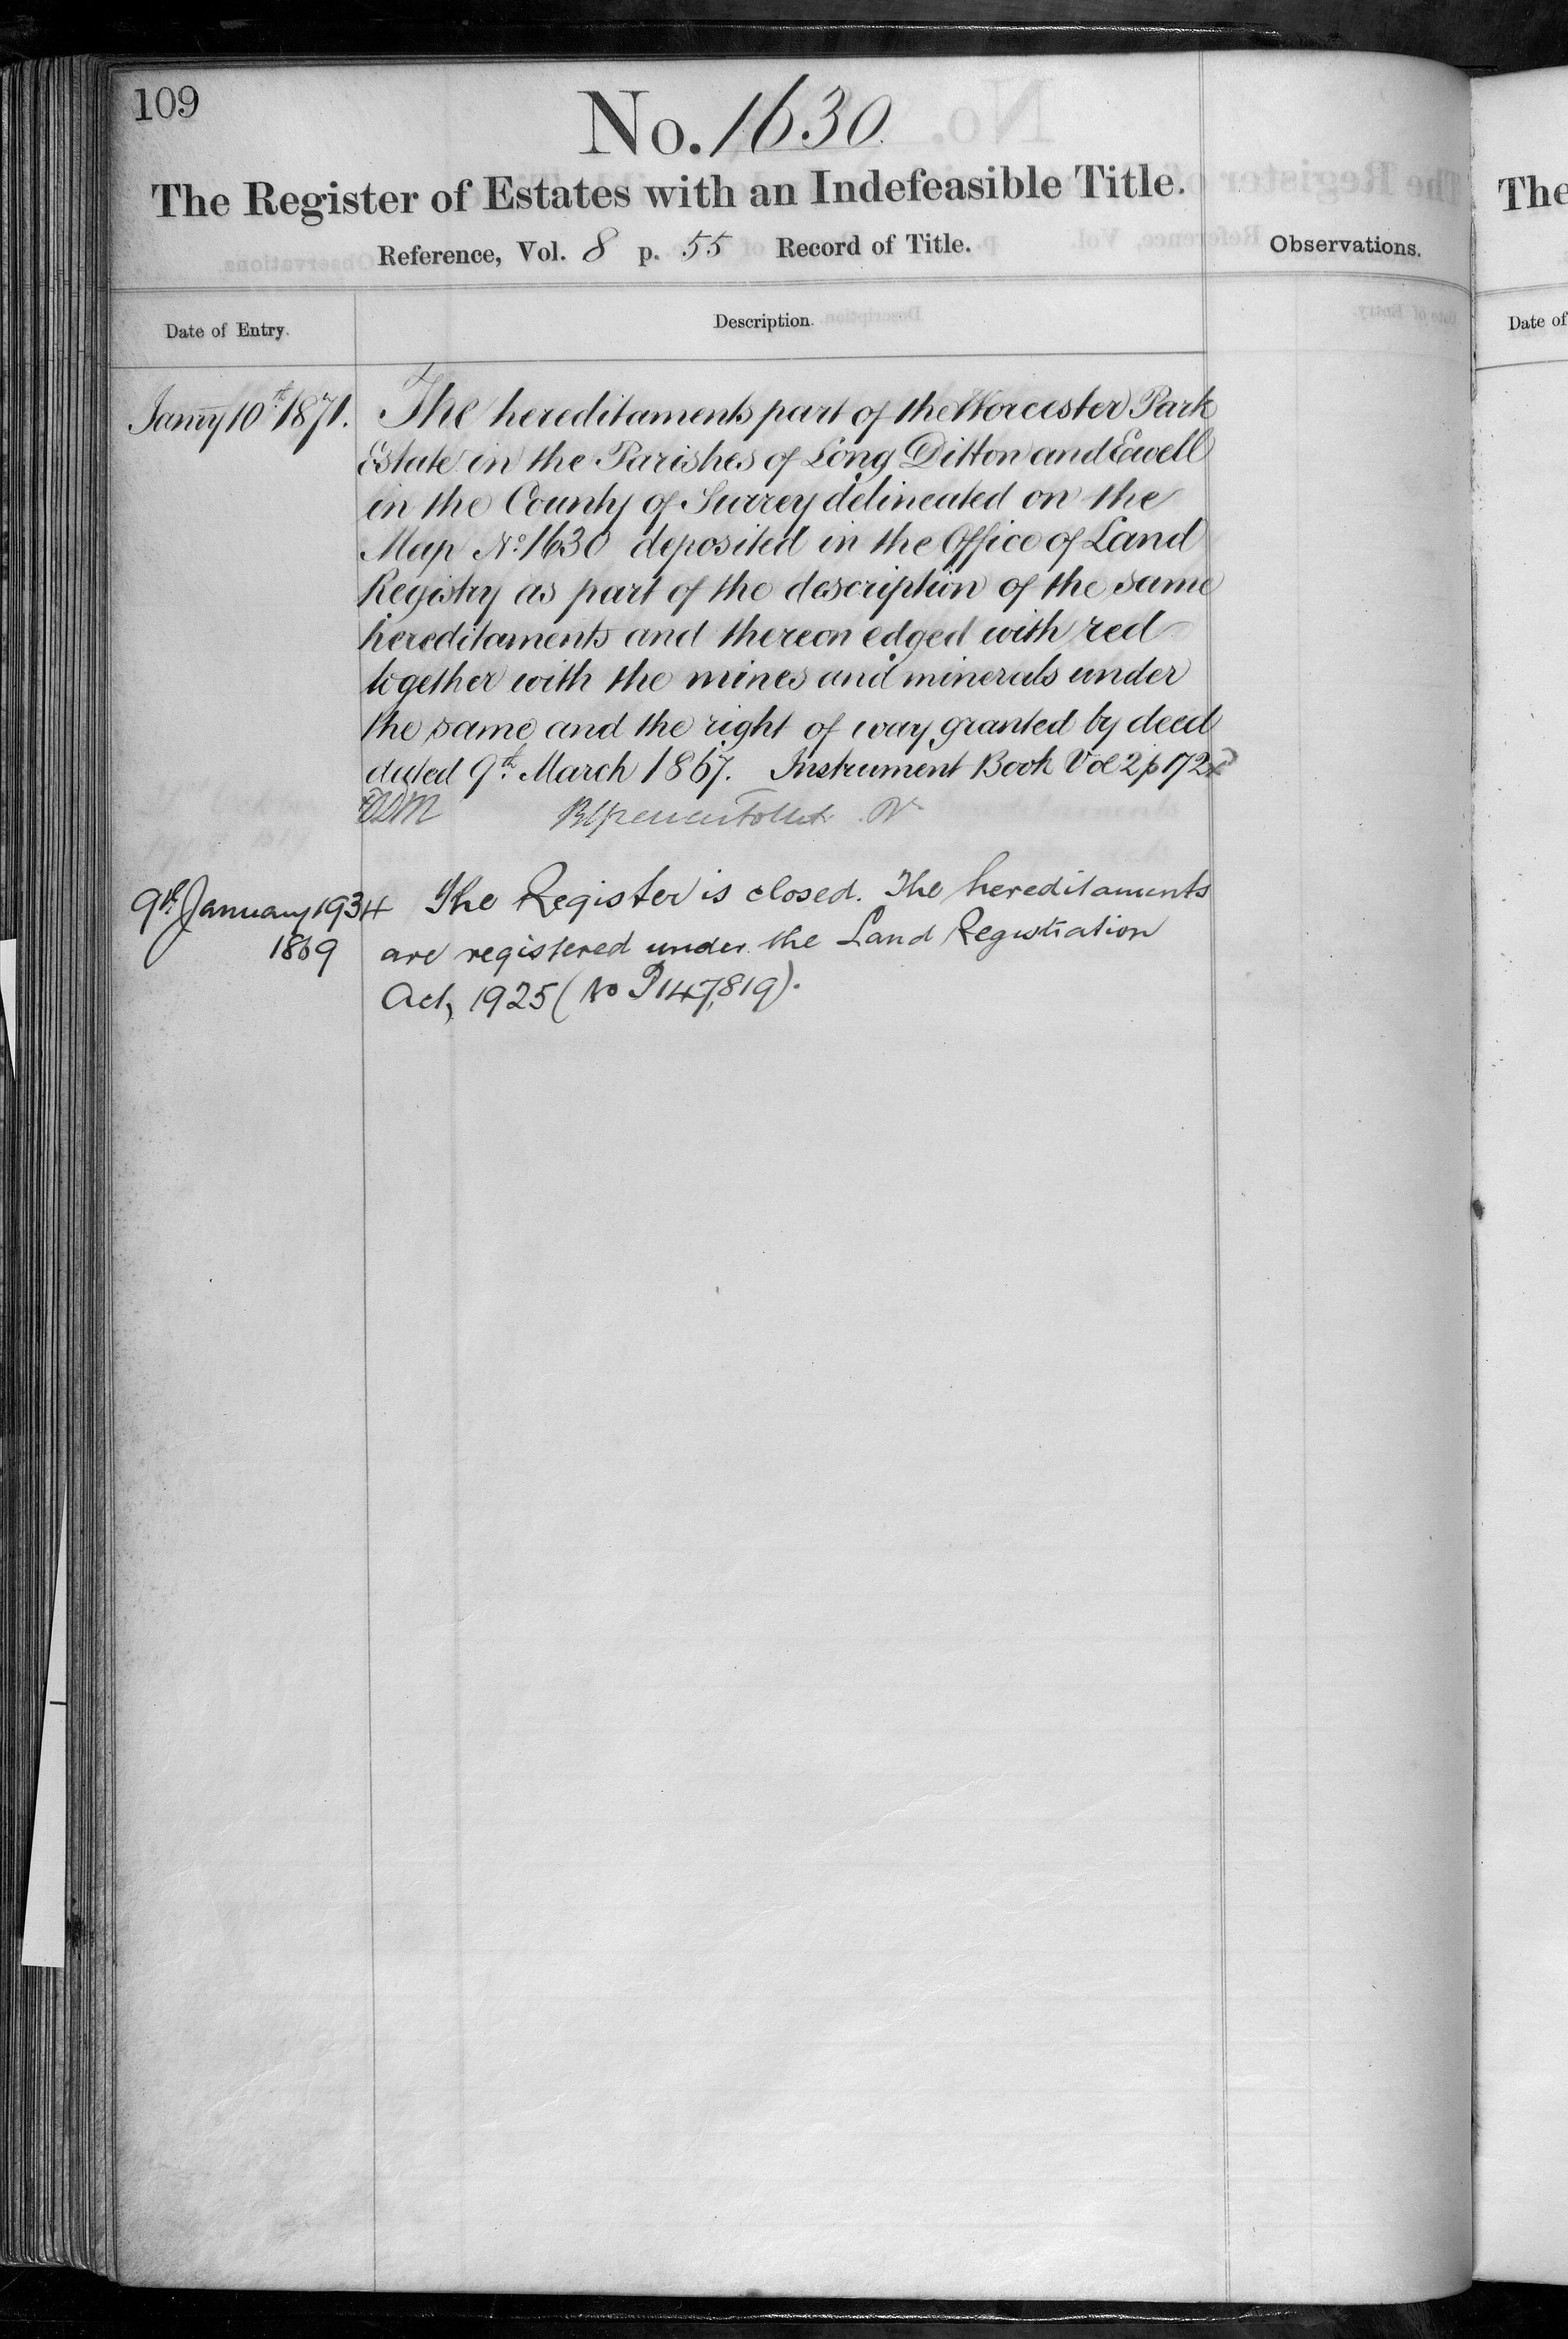 109
No. 1630.
The Register of Estates with an Indefeasible Title.
Reference, Vol. 8 p. 55 Record of Title.
Observations.
Date of Entry.
Description.
Janry 10th 1871.
The hereditaments part of the Worcester Park
Estate in the Parishes of Long Ditton and Ewell
in the County of Surrey delineated on the
Map No. 1630 deposited in the Office of Land
Registry as part of the description of the same
hereditaments and thereon edged with red
together with the mines and minerals under
the same and the right of way granted by deed
dated 9th March 1867. Instrument Book Vol 2 p 172
9th January 1934
1869
The Register is closed. The hereditaments
are registered under the Land Registration
Act, 1925 (No P147,819).
The
Date of